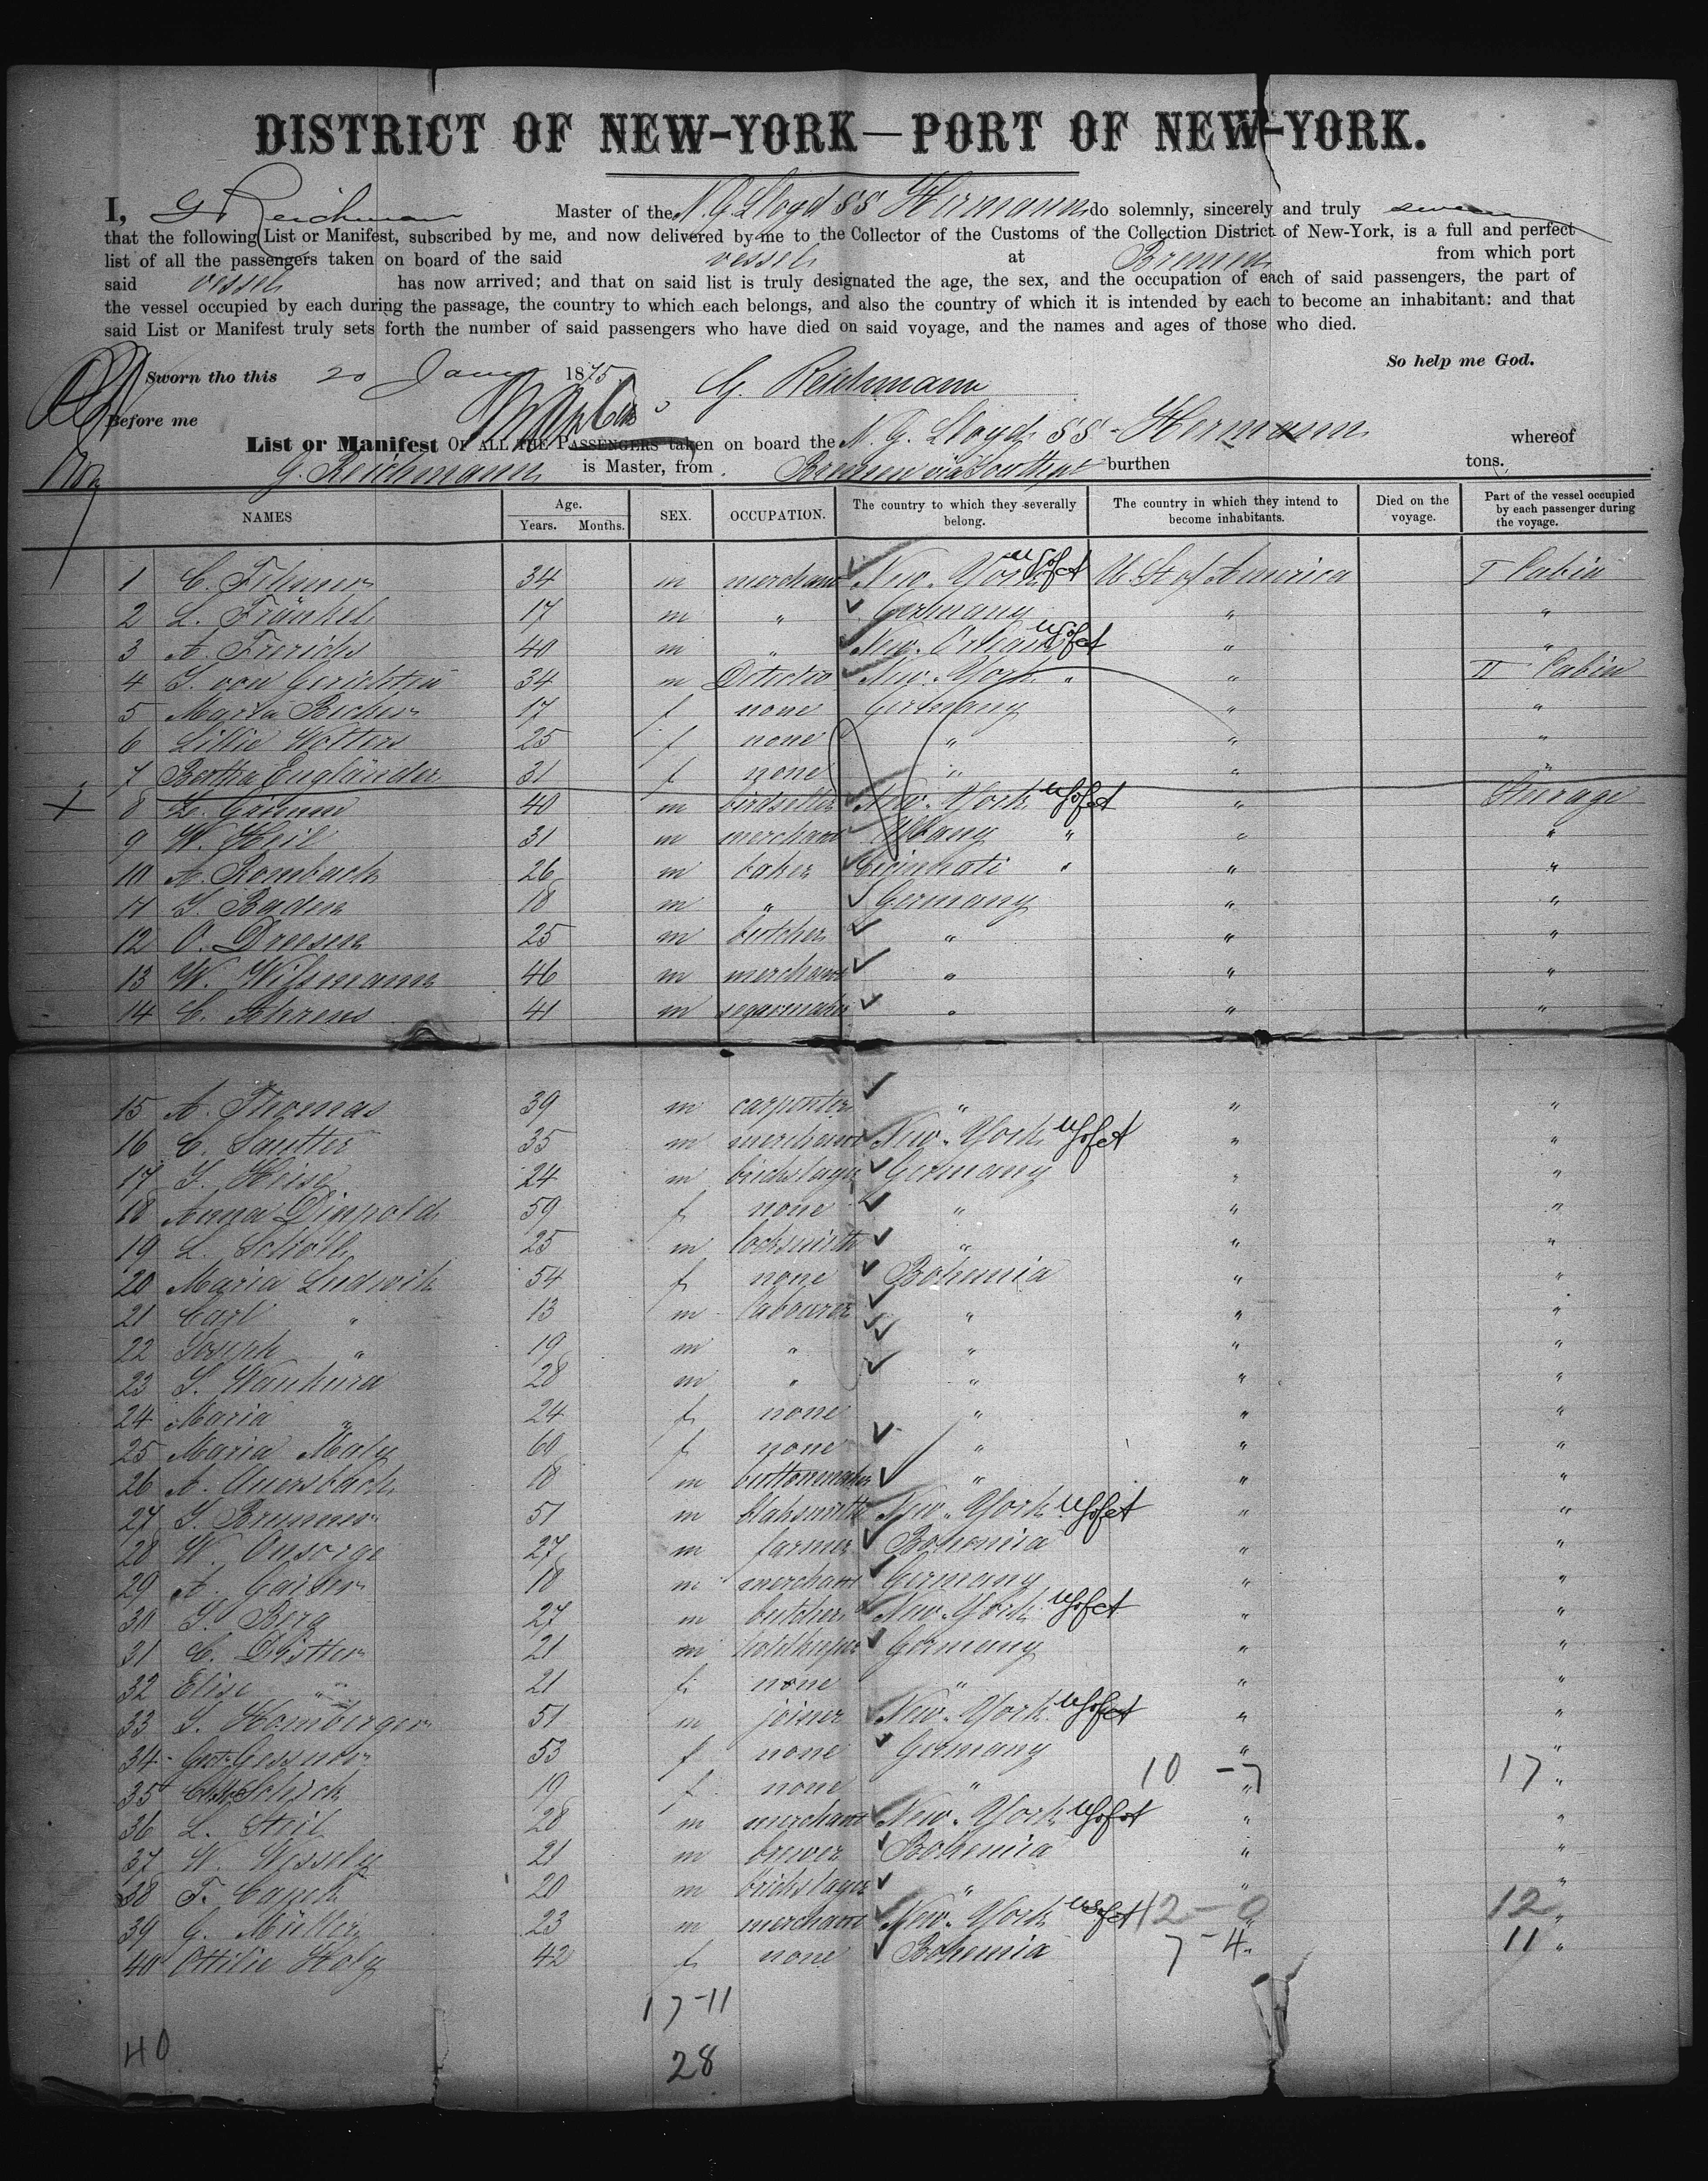 DISTRICT OF NEW-YORK—PORT OF NEW-YORK.
I, G Reichmann Master of the N. G Lloyd SS Hermann do solemnly, sincerely and truly swear
that the following List or Manifest, subscribed by me, and now delivered by me to the Collector of the Customs of the Collection District of New-York, is a full and perfect
list of all the passengers taken on board of the said vessel at Bremen from which port
said vessel has now arrived; and that on said list is truly designated the age, the sex, and the occupation of each of said passengers, the part of
the vessel occupied by each during the passage, the country to which each belongs, and also the country of which it is intended by each to become an inhabitant: and that
said List or Manifest truly sets forth the number of said passengers who have died on said voyage, and the names and ages of those who died.
So help me God.
Sworn tho this 20 Jany 1875 G. Reichmann
Before me
List or Manifest OF ALL THE PASSENGERS taken on board the N. G. Lloyd SS Hermann whereof
G. Reichmann is Master, from Bremen via Southpt burthen tons.
NAMES Age. Years. Months. SEX. OCCUPATION. The country to which they severally belong. The country in which they intend to become inhabitants. Died on the voyage. Part of the vessel occupied by each passenger during the voyage.
1 C. 34 m merchant New-York US of A U St of America I Cabin
2 L. Fränkel 17 m " Germany " "
3 A. Frerichs 40 m " New-Orleans US of A " "
4 von 34 m New-York " " II Cabin
5 Maria Becher 17 f none Germany " "
6 Lillie Wolters 25 f none " " "
7 Bertha Engländer 31 f none " " "
8 L. Grimm 40 m birdseller New-York US of A " Steerage
9 W. Heil 31 m merchant Albany " " "
10 A. Rombach 26 m baker Cicinnati " " "
11 J. Baden 18 m " Germany " "
12 O. Dreesen 25 m butcher " " "
13 W. Wilsmann 46 m merchant " " "
14 C. Ahrens 41 m segarmaker " " "
15 A. Thomas 39 m carpenter " " "
16 C. Sautter 35 m merchant New-York US of A " "
17 J. Heise 24 m Germany " "
18 Anna Dinpold 59 f none " " "
19 L. Scholl 25 m locksmith " " "
20 Maria Ludwik 54 f none Bohemia " "
21 Carl " 13 m labourer " " "
22 Joseph " 19 m " " " "
23 J. Wankura 28 m " " " "
24 Maria " 24 f none " " "
25 Maria Maly 60 f none " " "
26 A. Auersbach 18 m buttonmaker " " "
27 J. Brunner 51 m blaksmith New-York US of A " "
28 W. Onsorge 27 m farmer Bohemia " "
29 A. Gaiser 18 m merchant Germany " "
30 J. Berg 27 m butcher New-York US of A " "
31 C. Distter 21 m hotelkeeper Germany " "
32 Elise " 21 f none " " "
33 J. Homberger 51 m joiner New-York US of A " "
34 Gessner 53 f none Germany " "
35 Schick 19 f none " 10 - 7 " 17 "
36 L. Steil 28 m merchant New-York US of A " "
37 W. Wessely 21 m brewer Bohemia " "
38 F. 20 m " " "
39 G. Müller 23 m merchant New-York US of A 12 - 0 " 12 "
40 Ottilie Holy 42 f none Bohemia 7 - 4 " 11 "
17-11
40 28